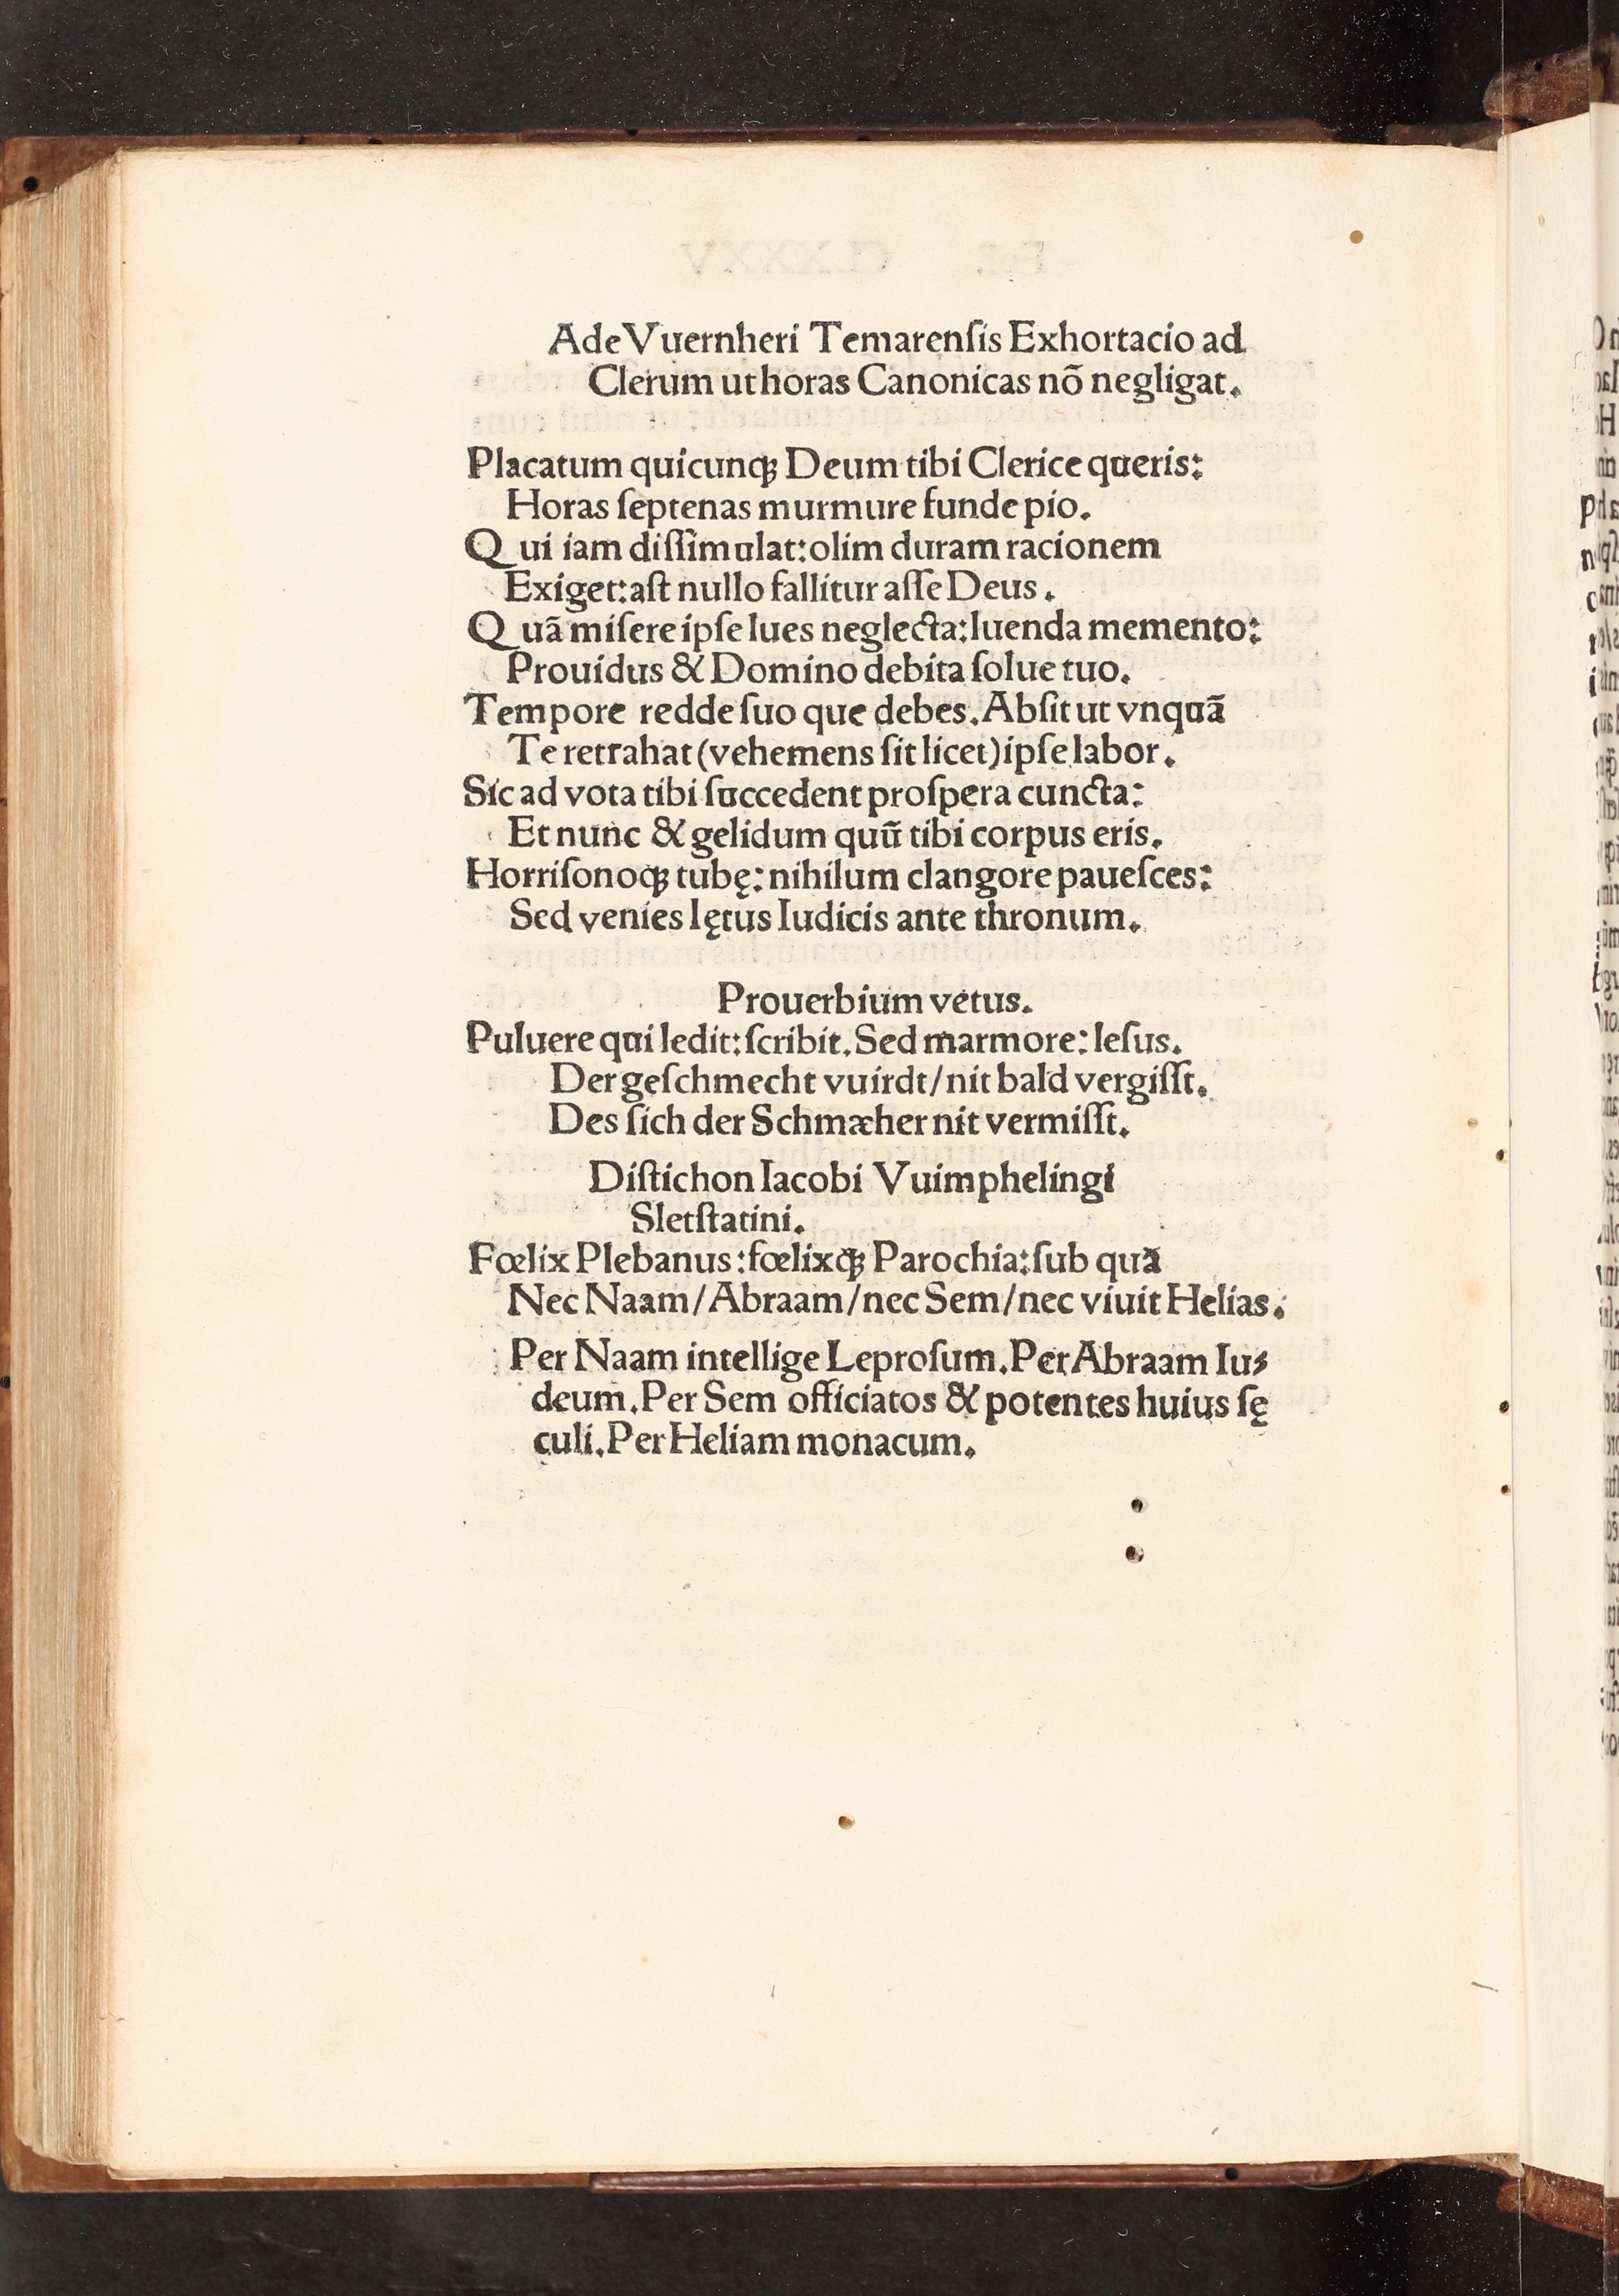 Ade Vuernheri Temarenſis Exhortacio ad
Clerum ut horas Canonicas nõ negligat.
Placatum quicunqꝫ Deum tibi Clerice queris:
Horas ſeptenas murmure funde pio.
Qui iam diſſimulat: olim duram racionem
Exiget: aſt nullo fallitur aſſe Deus.
Quã miſere ipſe lues neglecta: luenda memento:
Prouidus & Domino debita ſolue tuo.
Tempore redde ſuo que debes. Abſit ut vnquã
Te retrahat (vehemens ſit licet) ipſe labor.
Sic ad vota tibi ſuccedent proſpera cuncta:
Et nunc & gelidum quũ tibi corpus eris.
Horriſonoqꝫ tubę: nihilum clangore paueſces:
Sed venies lętus Iudicis ante thronum.
Prouerbium vetus.
Puluere qui ledit: ſcribit. Sed marmore: leſus.
Der geſchmecht vuirdt/ nit bald vergiſſt.
Des ſich der Schmæher nit vermiſſt.
Diſtichon Iacobi Vuimphelingi
Sletſtatini.
Fœlix Plebanus: fœlixqꝫ Parochia: ſub qua
Nec Naam/ Abraam/ nec Sem/ nec viuit Helias.
Per Naam intellige Leproſum. Per Abraam Iu⸗
deum. Per Sem officiatos & potentes huius ſę
culi. Per Heliam monacum.